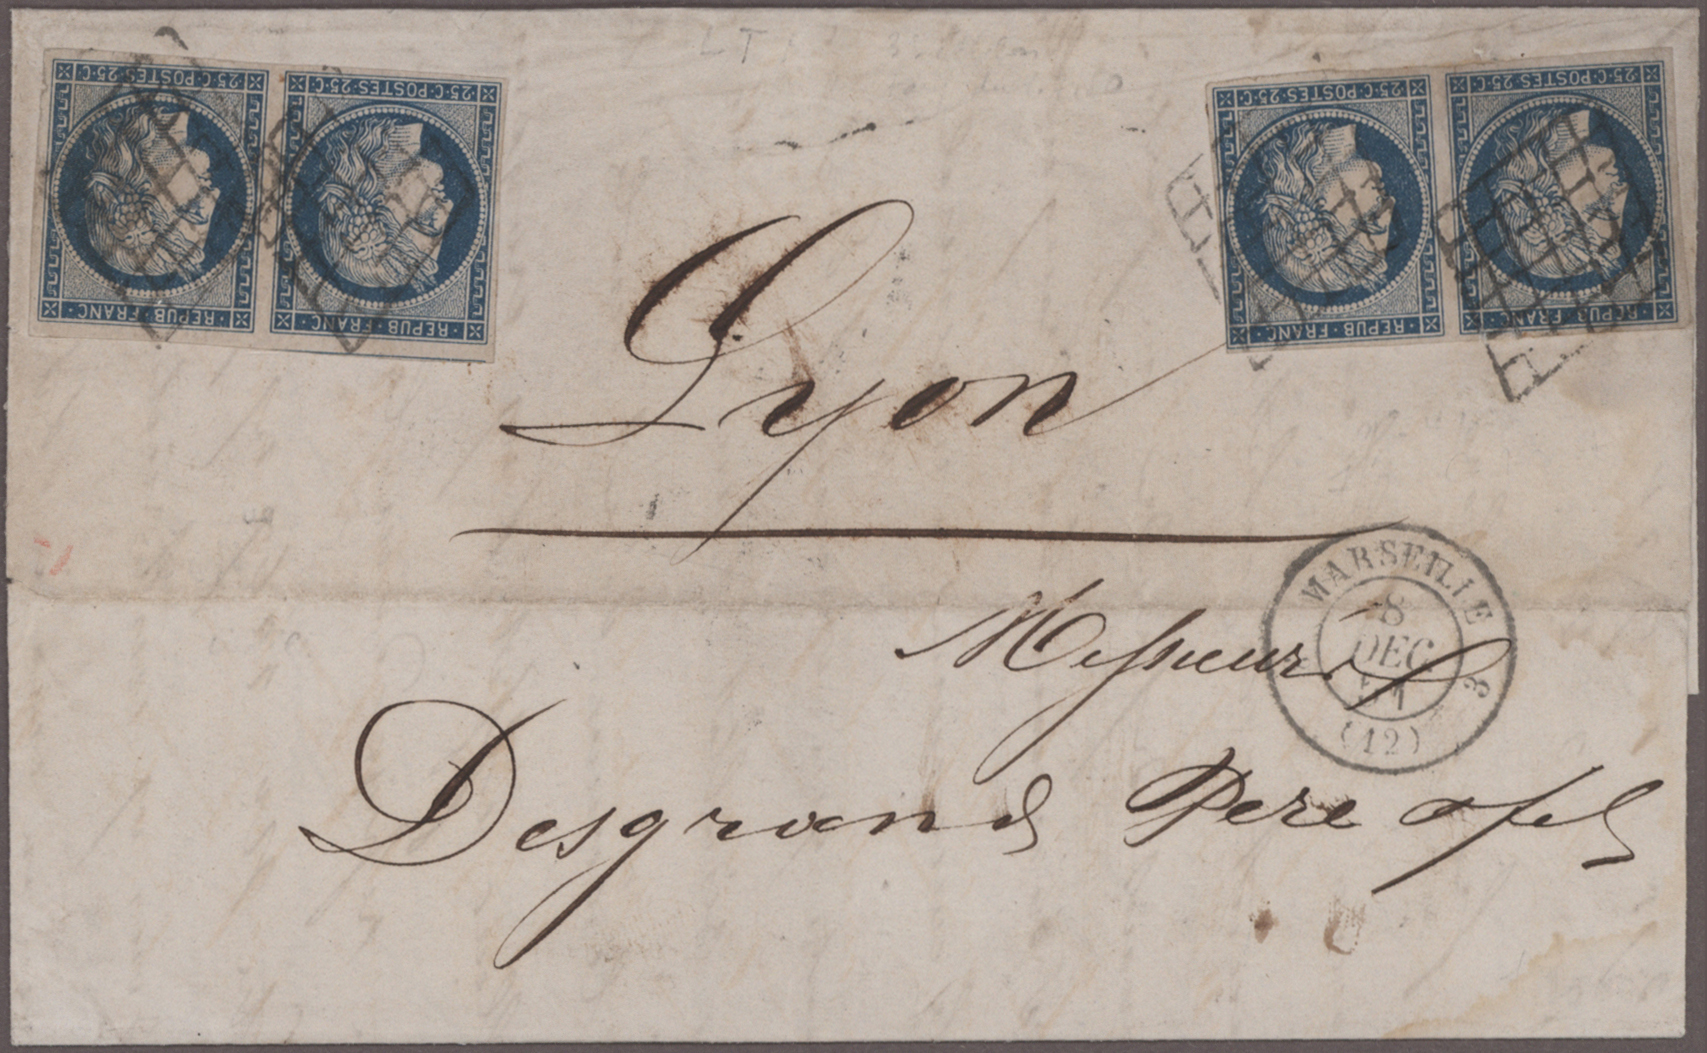 25·C·POSTES·25·C
REPUB·FRANC
25·C·POSTES·25·C
REPUB·FRANC
25·C·POSTES·25·C
REPUB·FRANC
25·C·POSTES·25·C
REPUB·FRANC
LT
Lyon
Messieurs
Desgrand Pere & fils
MARSEILLE
8
DEC
51
(12)